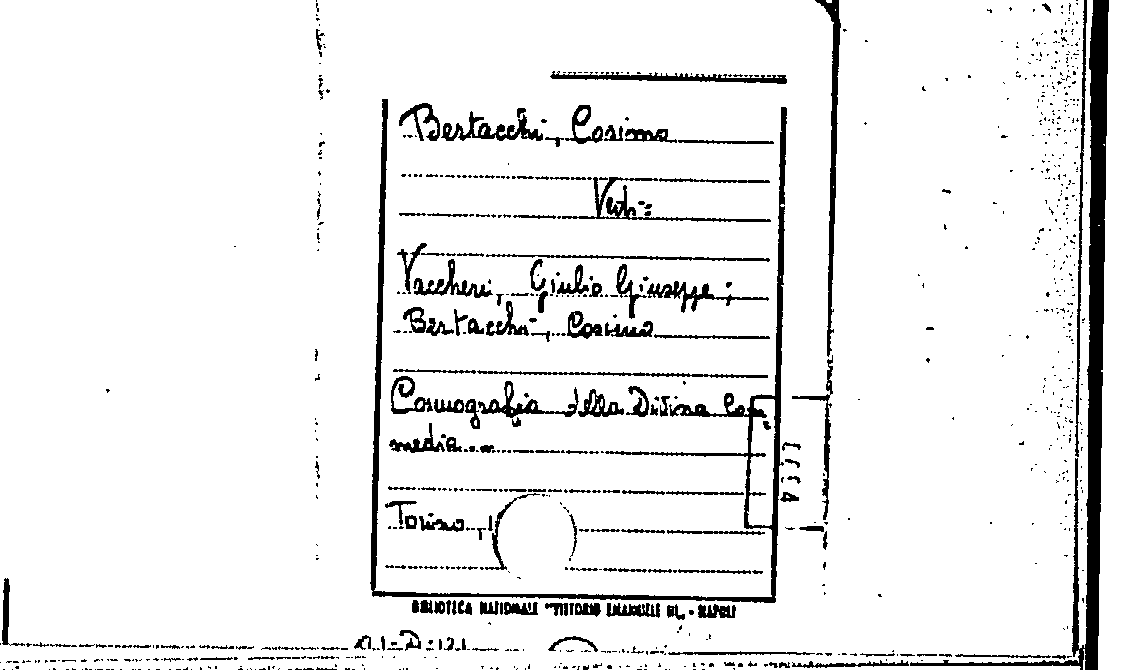 Bertacchi, Cosimo
Vedi:
Vaccheri, Giulio Giuseppe;
Bertacchi, Cosimo
Cosmografia della Divina Com
media...
Torino, 1
BIBLIOTECA NAZIONALE "VITTORIO EMANUELE III" - NAPOLI